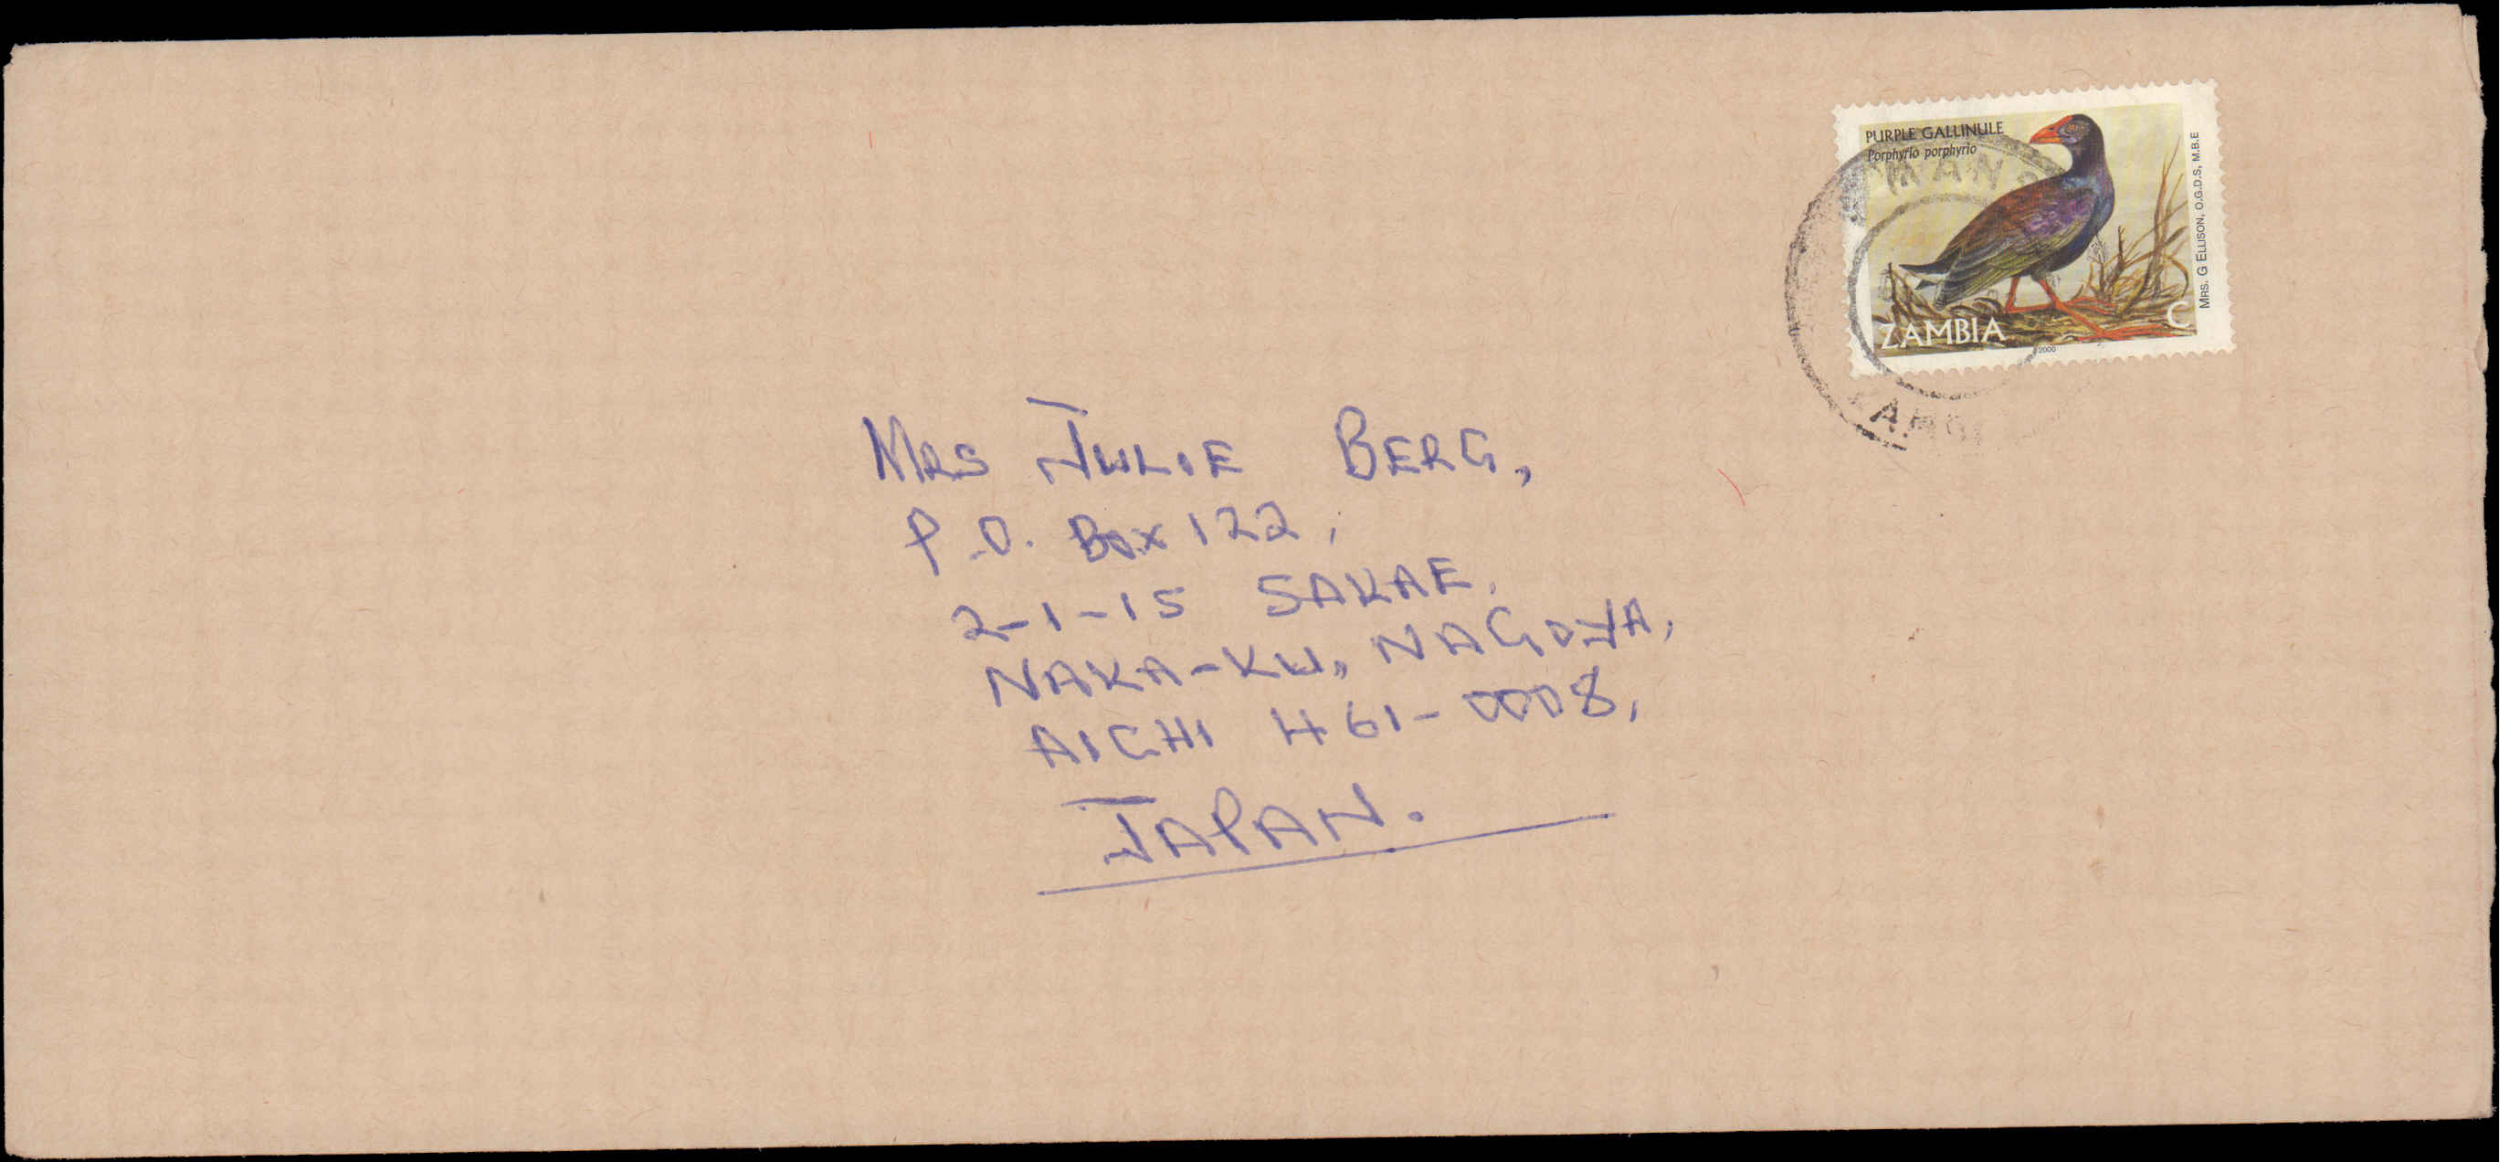 PURPLE GALLINULE
Porphyrio porphyrio
ZAMBIA
C
2000
MRS. G ELLISON, O.G.D.S, M.B.E
MRS JULIE BERG,
P.O. Box 122,
2-1-15 SAKAE,
NAKA-KU, NAGOYA,
AICHI 461-0008,
JAPAN.